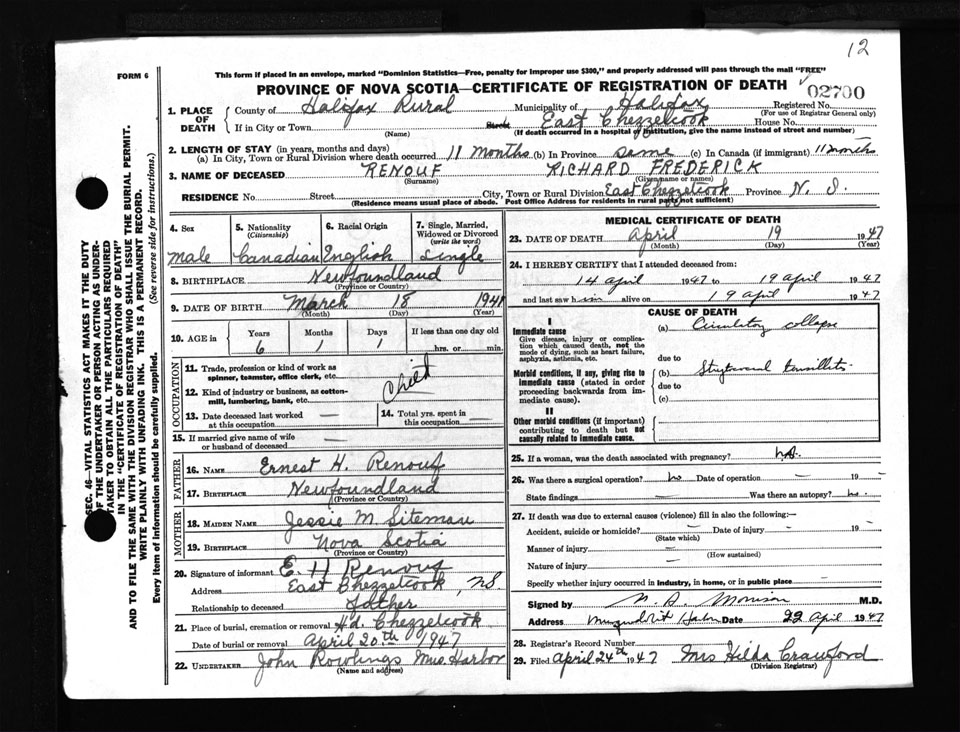 12
FORM 6
This form if placed in an envelope, marked "Dominion Statistics—Free, penalty for improper use $300," and properly addressed will pass through the mail "FREE"
PROVINCE OF NOVA SCOTIA—CERTIFICATE OF REGISTRATION OF DEATH
02700
1. PLACE OF DEATH { County of Halifax Rural Municipality of Halifax Registered No.
(For use of Registrar General only)
If in City or Town Street East Chezzetcook House No.
(Name) (If death occurred in a hospital or institution, give the name instead of street and number)
2. LENGTH OF STAY (in years, months and days)
(a) In City, Town or Rural Division where death occurred 11 months (b) In Province same (c) In Canada (if immigrant) 11 months
3. NAME OF DECEASED RENOUF RICHARD FREDERICK
(Surname) (Given name or names)
RESIDENCE No. Street City, Town or Rural Division East Chezzetcook Province N. S.
(Residence means usual place of abode. Post Office Address for residents in rural parts not sufficient)
SEC. 46—VITAL STATISTICS ACT MAKES IT THE DUTY
OF THE UNDERTAKER OR PERSON ACTING AS UNDER-
TAKER TO OBTAIN ALL THE PARTICULARS REQUIRED
IN THE "CERTIFICATE OF REGISTRATION OF DEATH"
AND TO FILE THE SAME WITH THE DIVISION REGISTRAR WHO SHALL ISSUE THE BURIAL PERMIT.
WRITE PLAINLY WITH UNFADING INK. THIS IS A PERMANENT RECORD.
Every item of Information should be carefully supplied. (See reverse side for instructions.)
4. Sex
Male
5. Nationality
(Citizenship)
Canadian
6. Racial Origin
English
7. Single, Married, Widowed or Divorced
(write the word)
Single
8. BIRTHPLACE Newfoundland
(Province or Country)
9. DATE OF BIRTH March 18 1941
(Month) (Day) (Year)
10. AGE in Years Months Days If less than one day old
6 1 1 hrs. or min.
OCCUPATION
11. Trade, profession or kind of work as spinner, teamster, office clerk, etc.
Child
12. Kind of industry or business, as cotton-mill, lumbering, bank, etc.
13. Date deceased last worked at this occupation —
14. Total yrs. spent in this occupation —
15. If married give name of wife or husband of deceased —
FATHER
16. NAME Ernest H. Renouf
17. BIRTHPLACE Newfoundland
(Province or Country)
MOTHER
18. MAIDEN NAME Jessie M. Siteman
19. BIRTHPLACE Nova Scotia
(Province or Country)
20. Signature of informant E. H Renouf
Address East Chezzetcook, NS.
Relationship to deceased father
21. Place of burial, cremation or removal Hd. Chezzetcook
Date of burial or removal April 20th 1947
22. UNDERTAKER John Rowlings Mus. Harbor
(Name and address)
MEDICAL CERTIFICATE OF DEATH
23. DATE OF DEATH April 19 1947
(Month) (Day) (Year)
24. I HEREBY CERTIFY that I attended deceased from:
14 april 1947 to 19 april 1947
and last saw him alive on 19 april 1947
CAUSE OF DEATH
I
Immediate cause
Give disease, injury or complication which caused death, not the mode of dying, such as heart failure, asphyxia, asthenia, etc.
(a) Circulatory collapse
due to
Morbid conditions, if any, giving rise to immediate cause (stated in order proceeding backwards from immediate cause).
(b) tonsillitis
due to
(c)
II
Other morbid conditions (if important) contributing to death but not causally related to immediate cause.
25. If a woman, was the death associated with pregnancy?
26. Was there a surgical operation? no Date of operation 19 —
State findings — Was there an autopsy? no.
27. If death was due to external causes (violence) fill in also the following:—
Accident, suicide or homicide? — Date of injury — 19 —
(State which)
Manner of injury —
(How sustained)
Nature of injury —
Specify whether injury occurred in industry, in home, or in public place —
Signed by Morrison M.D.
Address Date 22 april 1947
28. Registrar's Record Number
29. Filed April 24th 1947 Mrs Hilda Crawford
(Division Registrar)